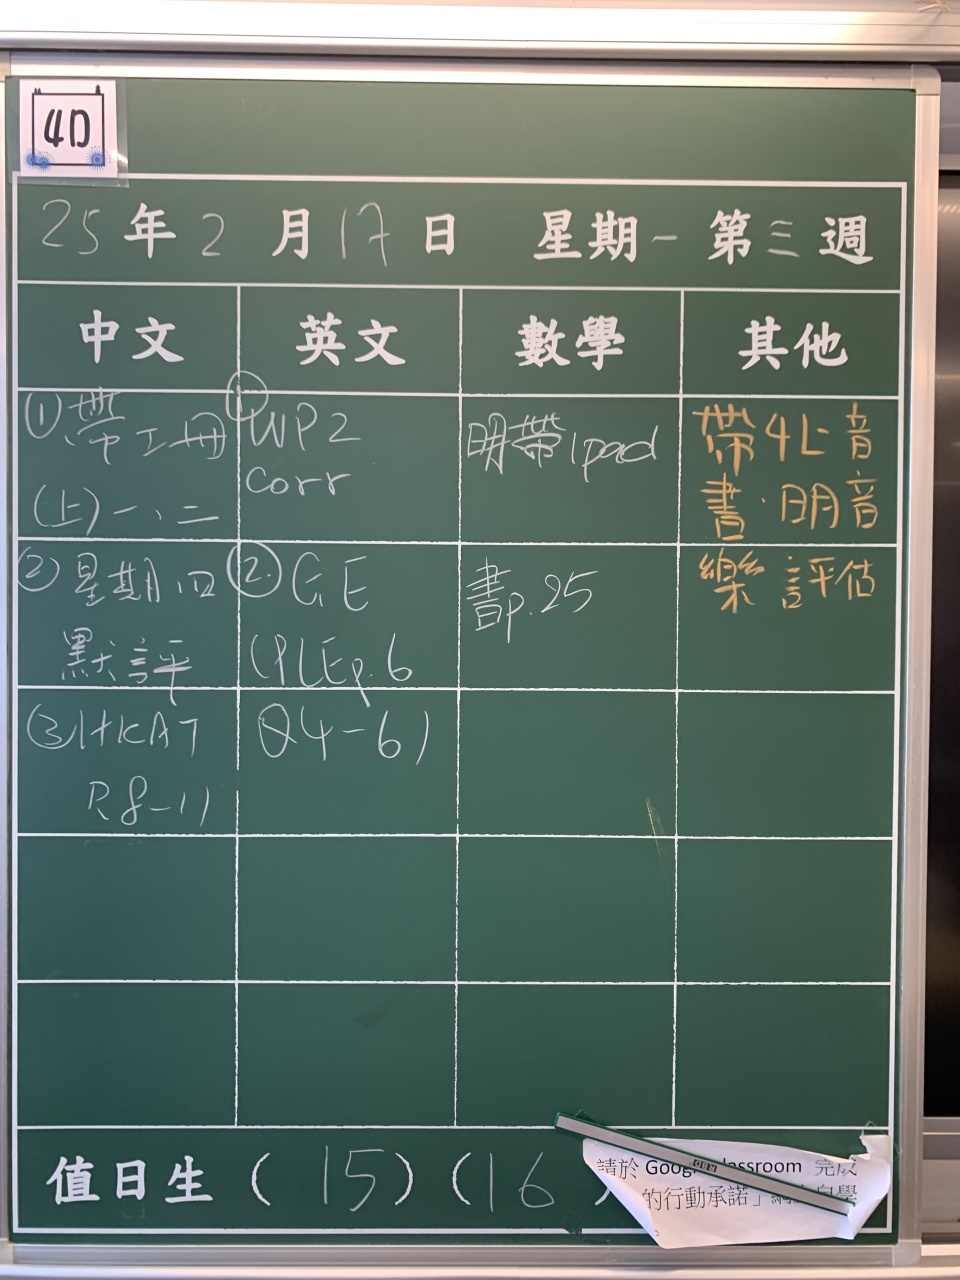 4D
25年2月17日 星期一 第三週
中文 英文 數學 其他
①帶工冊
(上)一、二
②星期四
默評
③HKAT
R8-11
①WP2
corr
②GE
(PLEp.6
Q4-6)
明帶ipad
書p.25
帶4上音
書·明音
樂評估
值日生(15)(16)
請於 Google Classroom 完成
的行動承諾」